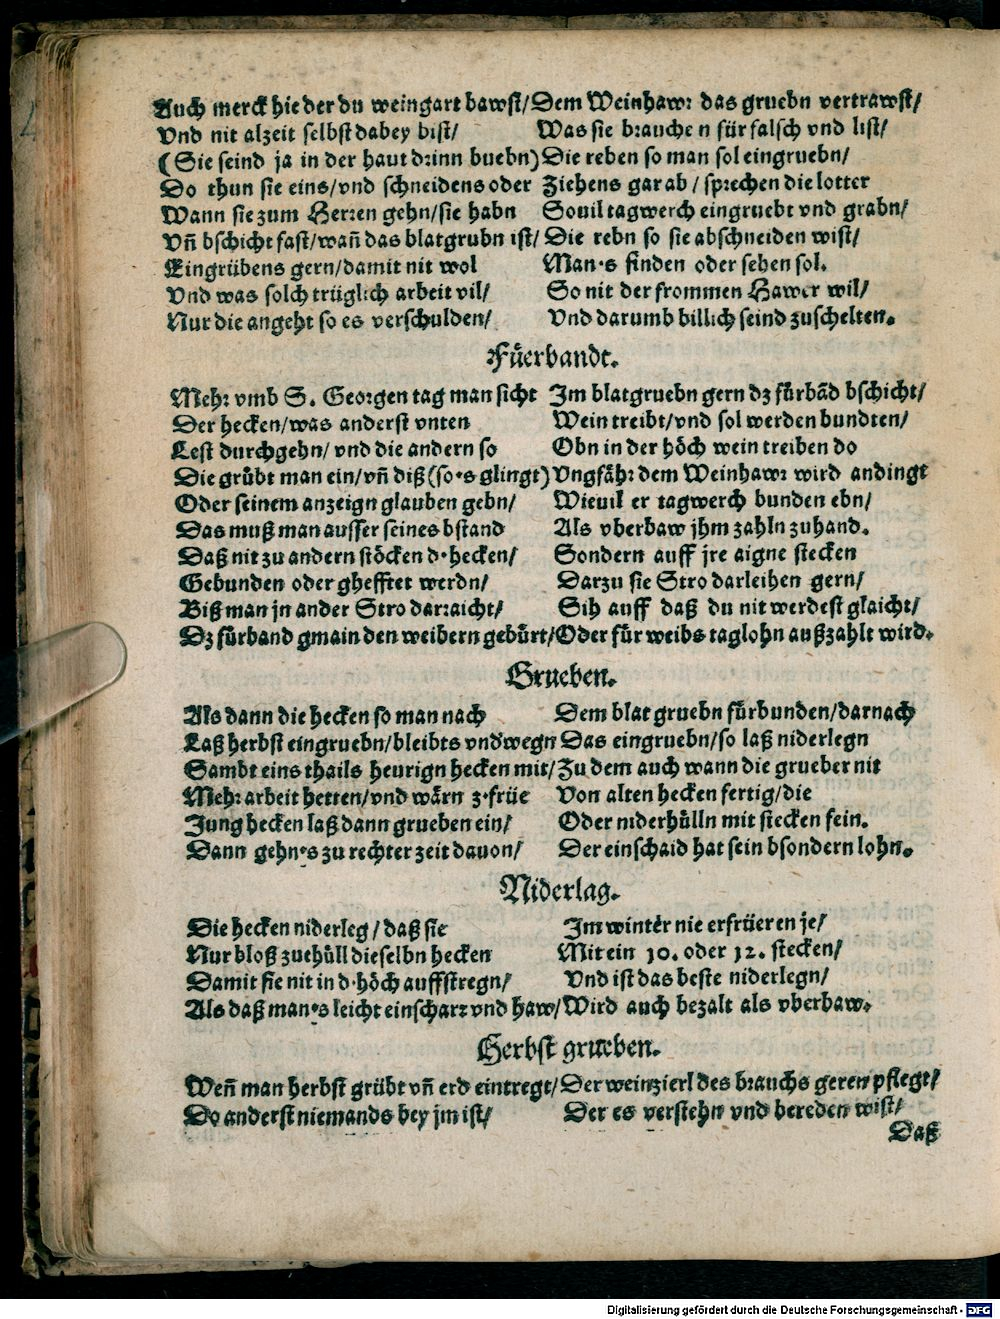 Auch merck hie der du weingart bawst/ Dem Weinhawr das gruebn vertrawst/
Vnd nit alzeit selbst dabey bist/ Was sie brauchen für falsch vnd list/
(Sie seind ja in der haut drinn buebn) Die reben so man sol eingruebn/
Do thun sie eins/vnd schneidens oder Ziehens gar ab/ sprechen die lotter
Wann sie zum Herren gehn/sie habn Souil tagwerch eingruebt vnd grabn/
Vñ bschicht fast/wañ das blatgrubn ist/ Die rebn so sie abschneiden wist/
Eingrübens gern/damit nit wol Man's finden oder sehen sol.
Vnd was solch trüglich arbeit vil/ So nit der frommen Hawer wil/
Nur die angeht so es verschulden/ Vnd darumb billich seind zuschelten.
Füerbandt.
Mehr vmb S. Georgen tag man sicht Im blatgruebn gern dz fürbãd bschicht/
Der hecken/was anderst vnten Wein treibt/vnd sol werden bundten/
Lest durchgehn/ vnd die andern so Obn in der höch wein treiben do
Die grůbt man ein/vñ diß (so's glingt) Vngfähr dem Weinhawr wird andingt
Oder seinem anzeign glauben gebn/ Wieuil er tagwerch bunden ebn/
Das muß man ausser seines bstand Als vberbaw jhm zahln zuhand.
Daß nit zu andern stöcken d'hecken/ Sondern auff jre aigne stecken
Gebunden oder ghefftet werdn/ Darzu sie Stro darleihen gern/
Biß man jn ander Stro darraicht/ Sih auff daß du nit werdest glaicht/
Dz fürband gmain den weibern gebürt/ Oder für weibs taglohn außzahlt wird.
Grueben.
Als dann die hecken so man nach Dem blatgruebn fürbunden/darnach
Laß herbst eingruebn/bleibts vnd'wegn Das eingruebn/so laß niderlegn
Sambt eins thails heurign hecken mit/ Zu dem auch wann die grueber nit
Mehr arbeit hetten/vnd wärn z'früe Von alten hecken fertig/die
Jung hecken laß dann grueben ein/ Oder niderhülln mit stecken fein.
Dann gehn's zu rechter zeit dauon/ Der einschaid hat sein bsondern lohn.
Niderlag.
Die hecken niderleg/ daß sie Im winter nie erfrüeren je/
Nur bloß zuehüll dieselbn hecken Mit ein 10. oder 12. stecken/
Damit sie nit in d'höch auffstregn/ Vnd ist das beste niderlegn/
Als daß man's leicht einscharr vnd haw/ Wird auch bezalt als vberbaw.
Herbst grueben.
Weñ man herbst grübt vñ erd eintregt/ Der weinzierl des brauchs geren pflegt/
Do anderst niemands bey jm ist/ Der es verstehn vnd bereden wist/
Daß
Digitalisierung gefördert durch die Deutsche Forschungsgemeinschaft - DFG